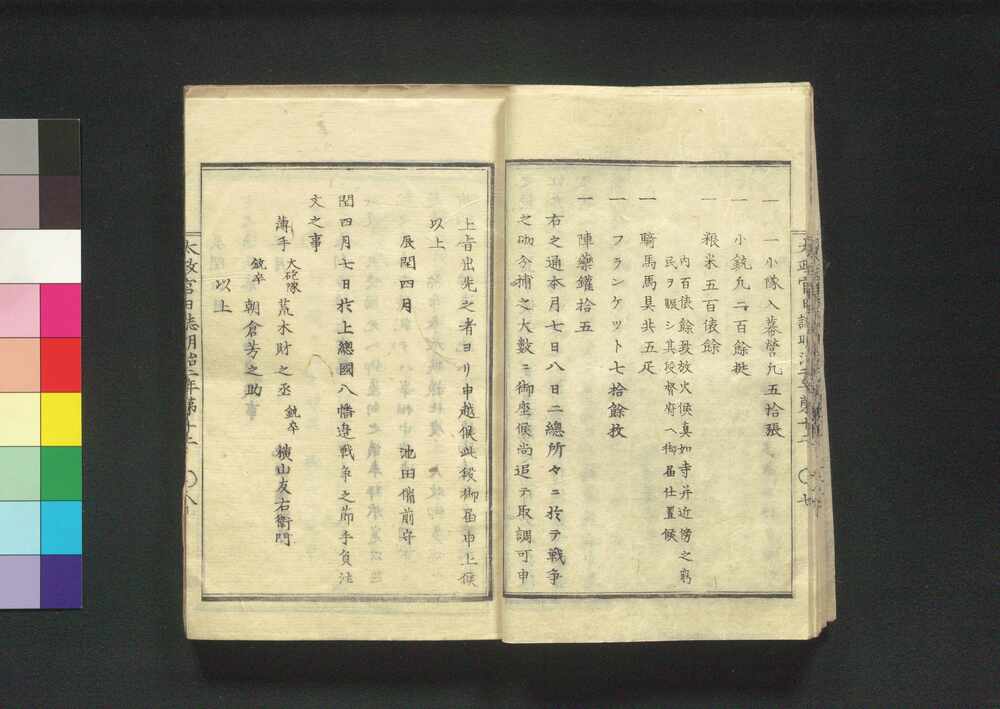 一 一小隊入幕營凡五拾張
一 小銃凡二百餘挺
一 粮米五百俵餘
内百俵餘致放火候真如寺并近傍之窮
民ヲ賑シ其段督府ヘ御届仕置候
一 騎馬馬具共五疋
一 フランケット七拾餘枚
一 陣藥鑵拾五
右之通本月七日八日二總所々ニ於テ戰爭
之砌分捕之大數ニ御座候尚追テ取調可申
上旨出先之者ヨリ申越候此段御届申上候
以上
辰閏四月 池田備前守
閏四月七日於上總國八幡邉戰爭之節手負注
文之事
薄手 大砲隊 荒木財之丞 銃卒 横山友右衞門
銃卒 朝倉芳之助
以上
太政官日誌明治二年第十二 〇八